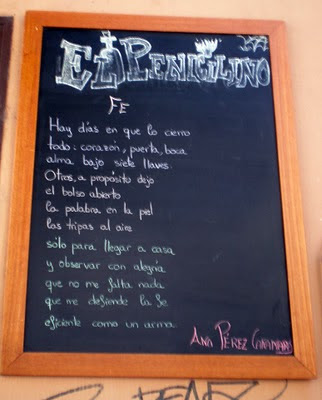 EL PENICILINO
FE
Hay días en que lo cierro
todo: corazón, puerta, boca
alma bajo siete llaves.
Otras, a propósito dejo
el bolso abierto
la palabra en la piel
las tripas al aire
sólo para llegar a casa
y observar con alegría
que no me falta nada
que me defiende la fe
eficiente como un arma.
ANA PÉREZ CAÑAMARES